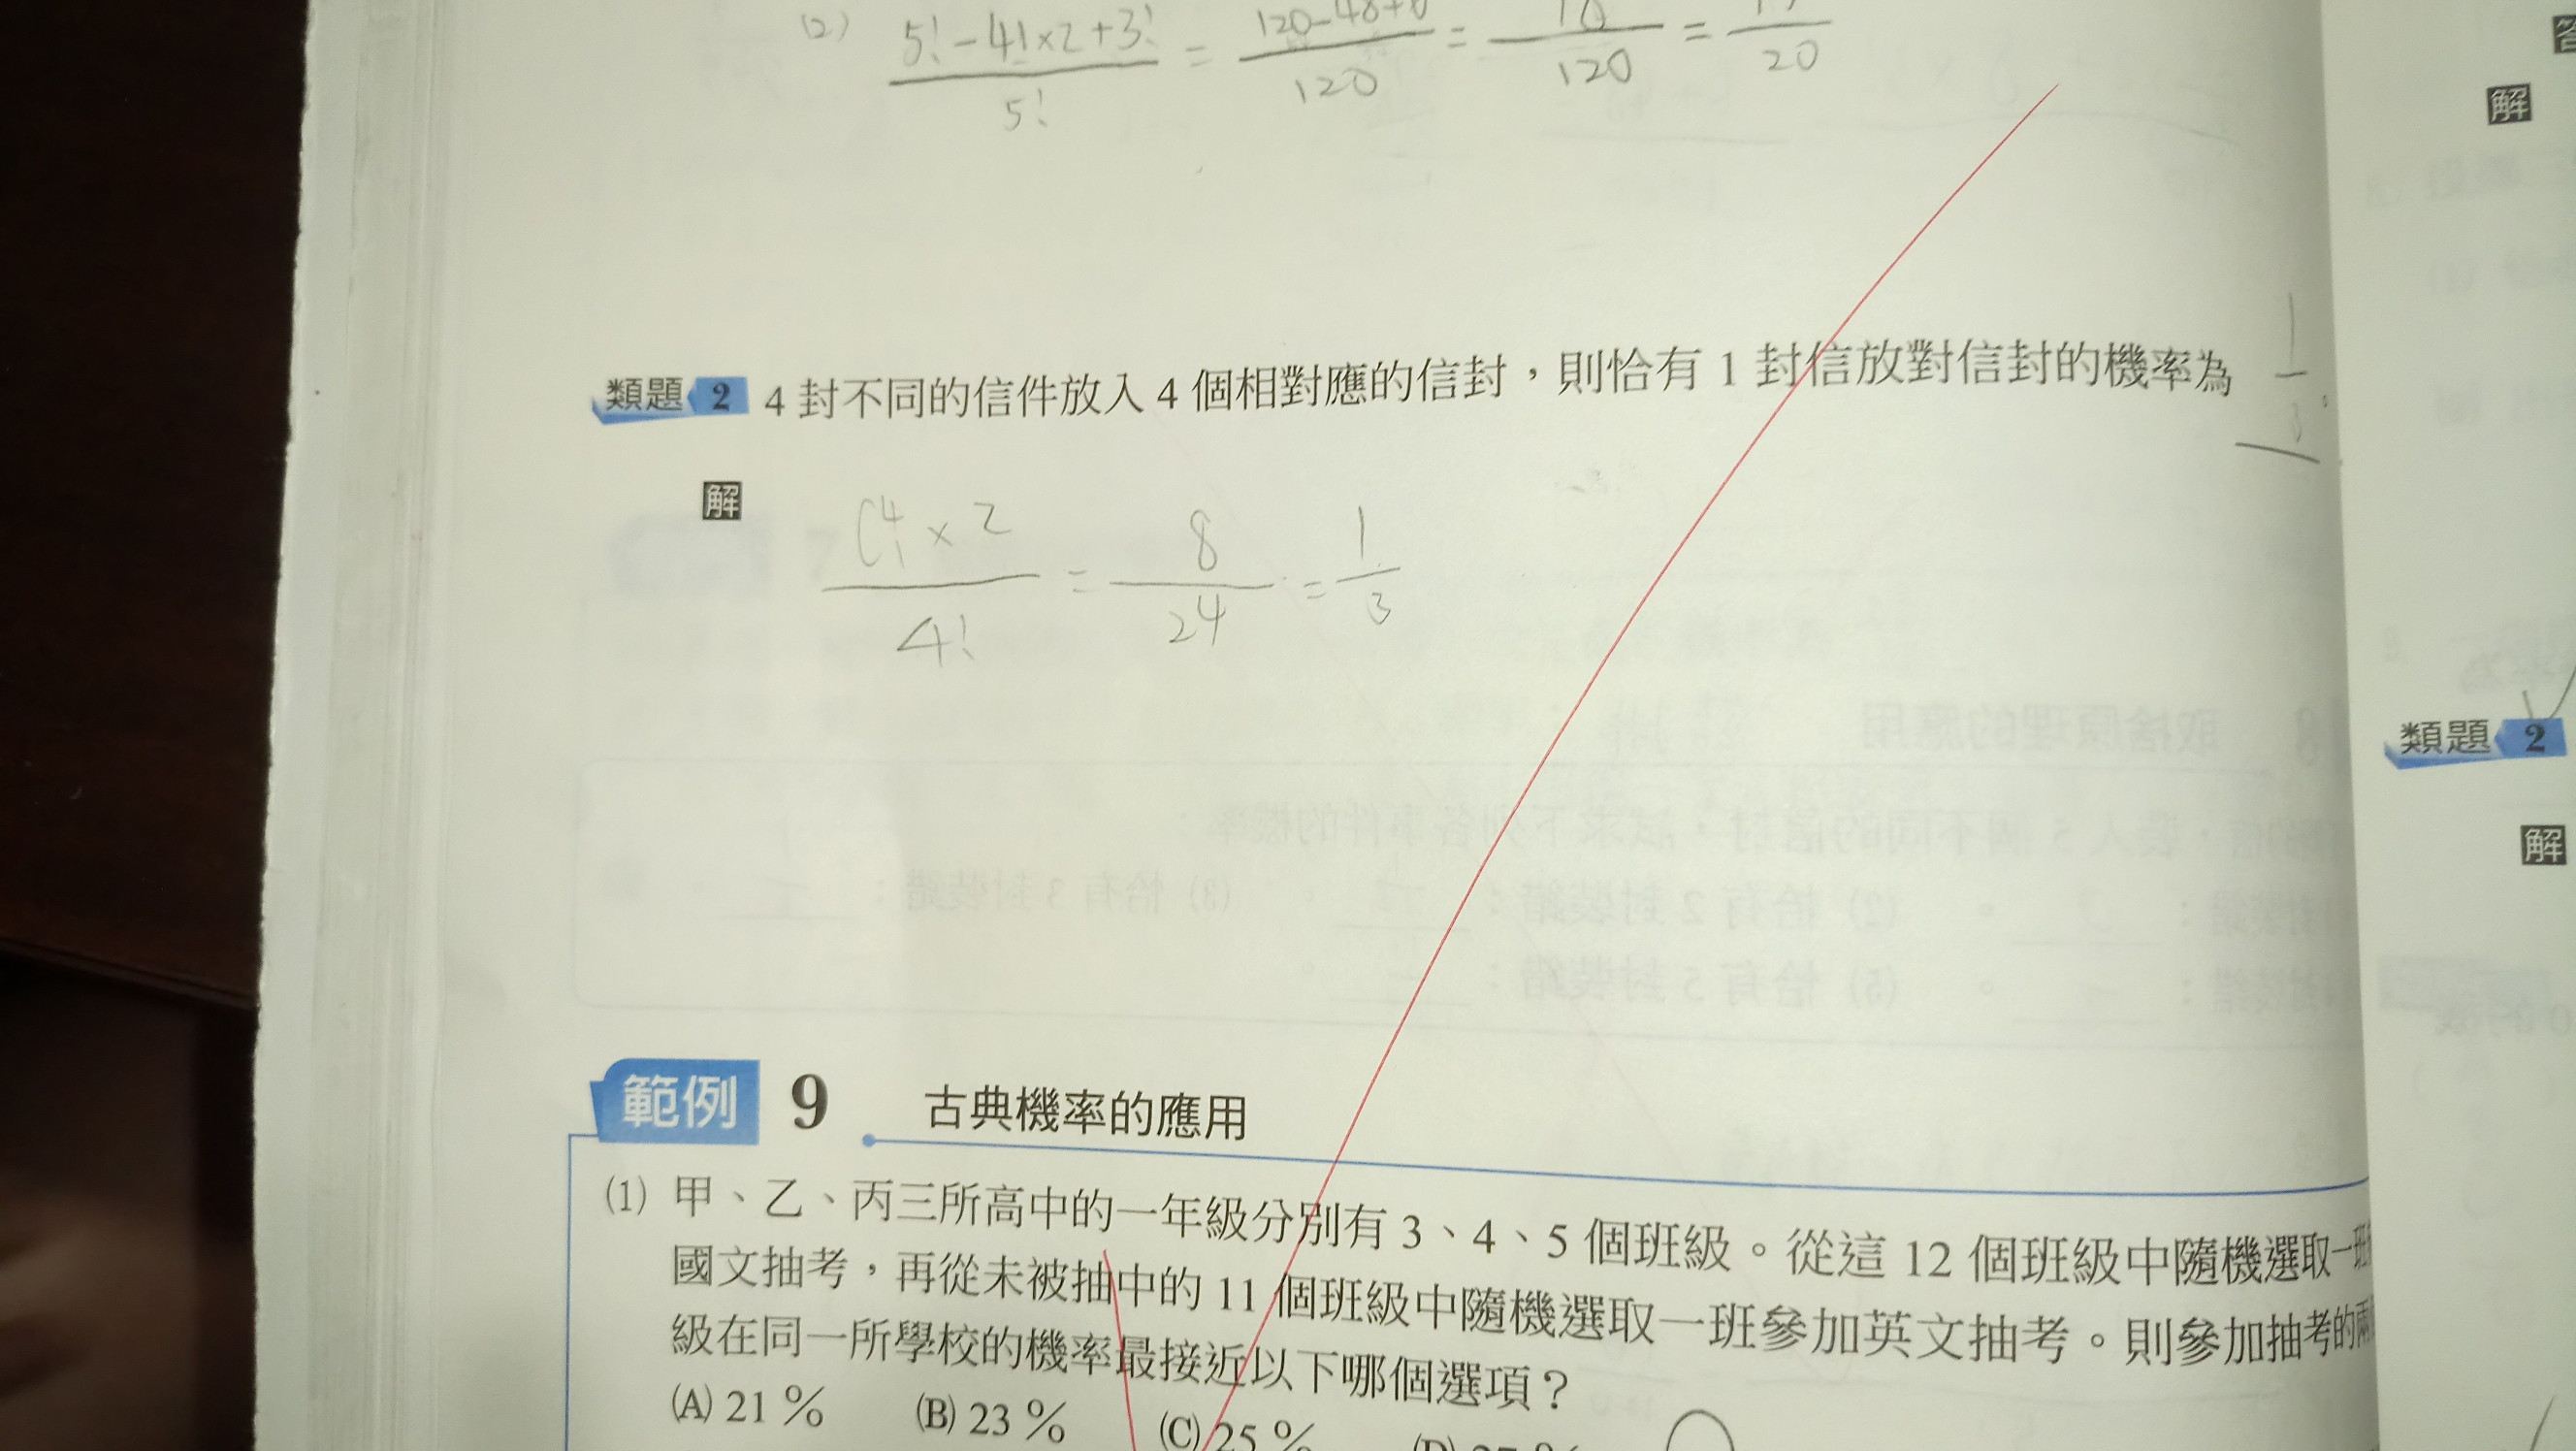 (2) 5!-4!×2+3! / 5! = 120-48+6 / 120 = / 120 = / 20
答
解
類題 2 4 封不同的信件放入 4 個相對應的信封，則恰有 1 封信放對信封的機率為 1/3 。
解 C⁴₁×2 / 4! = 8/24 = 1/3
類題 2
解
範例 9 古典機率的應用
(1) 甲、乙、丙三所高中的一年級分別有 3、4、5 個班級。從這 12 個班級中隨機選取一班
國文抽考，再從未被抽中的 11 個班級中隨機選取一班參加英文抽考。則參加抽考的兩
級在同一所學校的機率最接近以下哪個選項？
(A) 21 % (B) 23 % (C) 25 % (D) 27 %